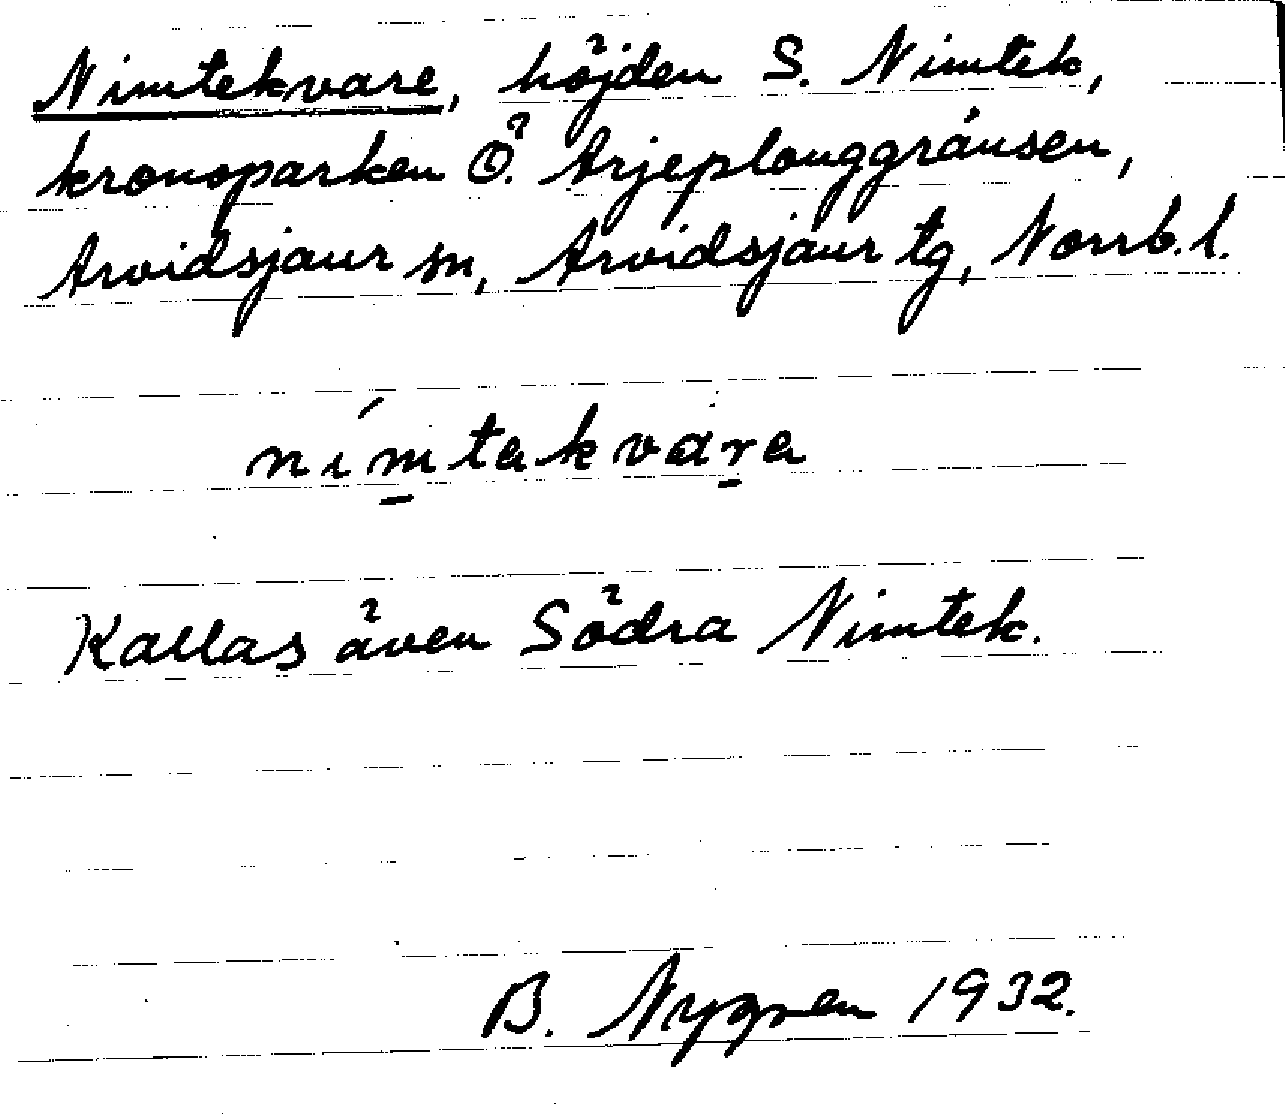 Nimtekvare, höjden S. Nimtek,
kronoparken Ö. Arjeplouggränsen,
Arvidsjaur sn, Arvidsjaur tg, Norrb. l.
nímtakvara
Kallas även Södra Nimtek.
B. Nygren 1932.